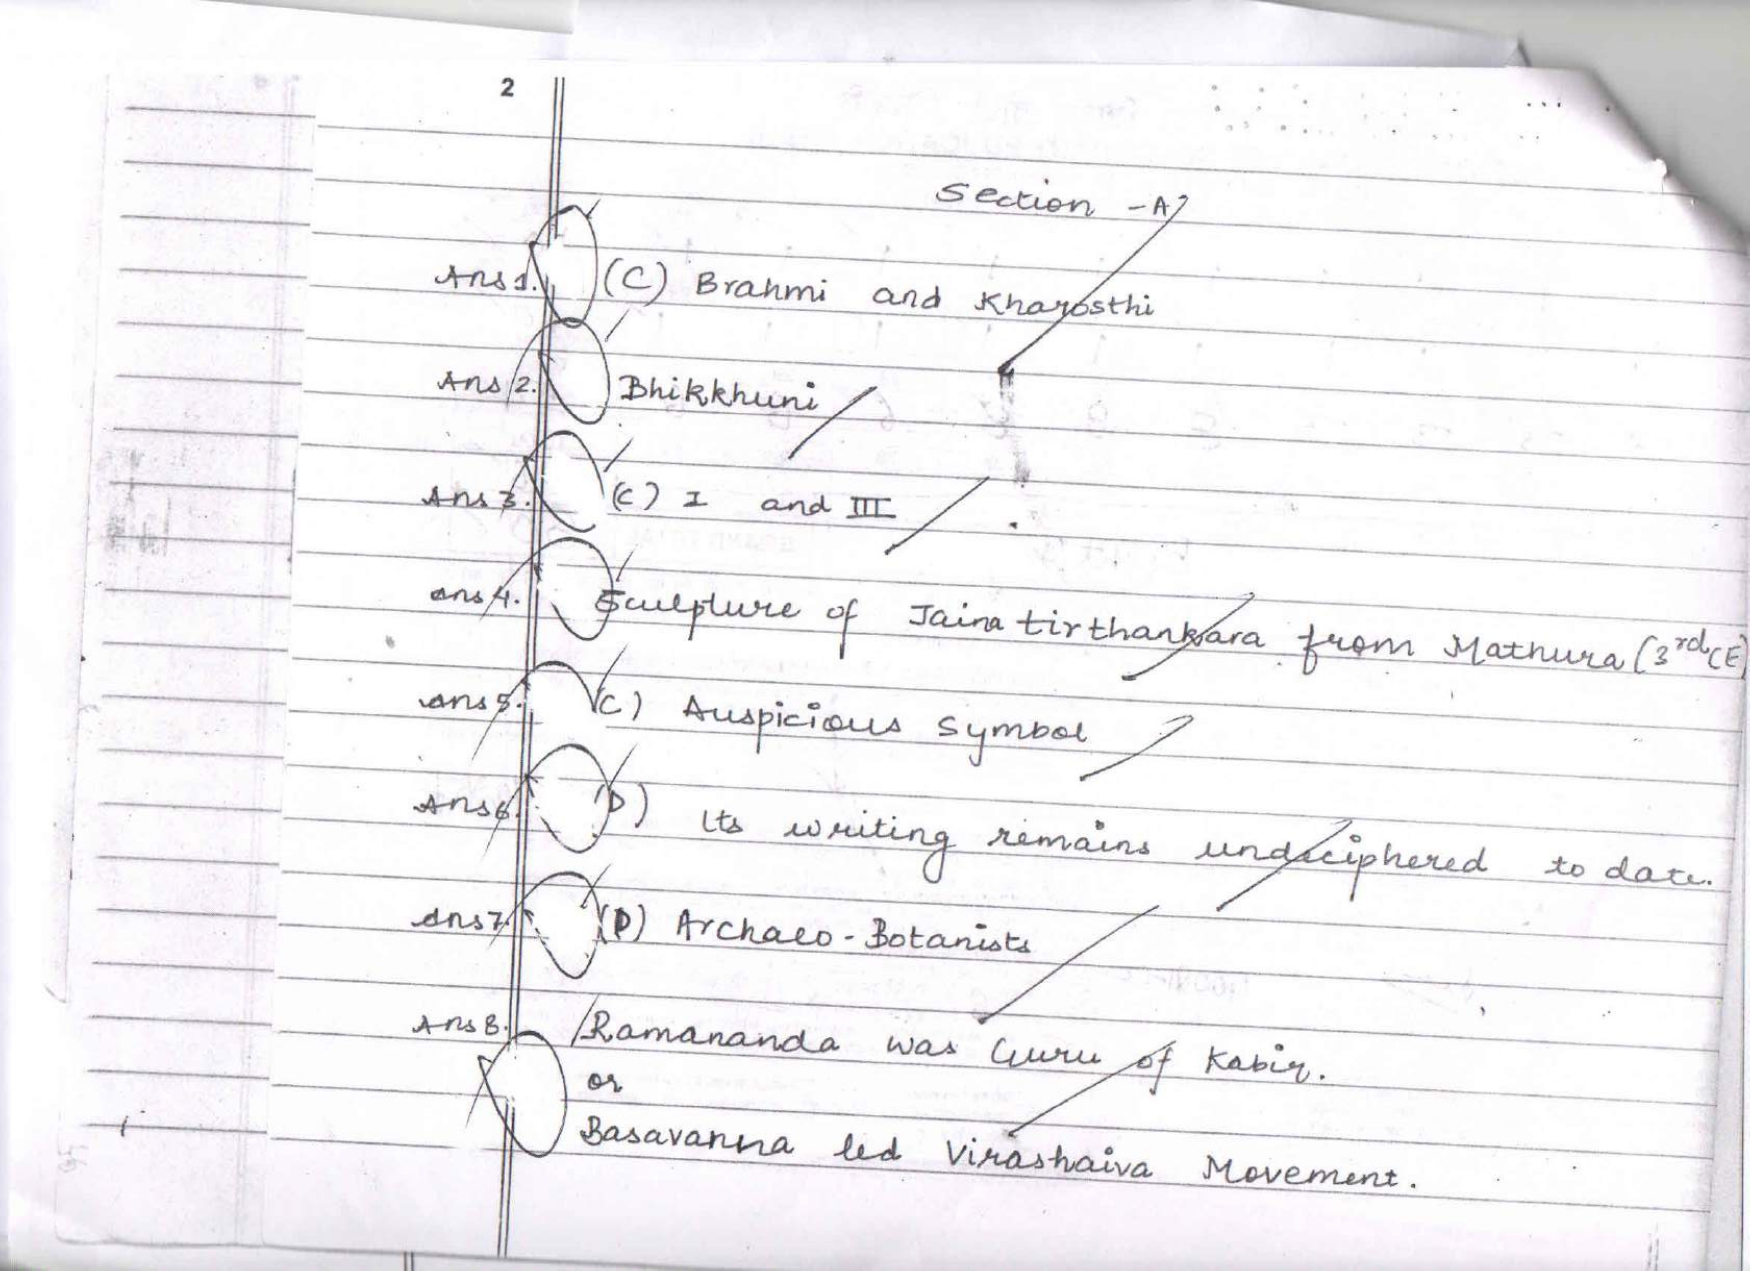 2
Section - A
Ans 1. (C) Brahmi and Kharosthi
Ans 2. Bhikkhuni
Ans 3. (C) I and III
Ans 4. Sculpture of Jaina tirthankara from Mathura (3rd CE)
Ans 5. (C) Auspicious Symbol
Ans 6. (D) Its writing remains undeciphered to date.
Ans 7. (D) Archaeo-Botanists
Ans 8. Ramananda was Guru of Kabir.
or
Basavanna led Virashaiva Movement.